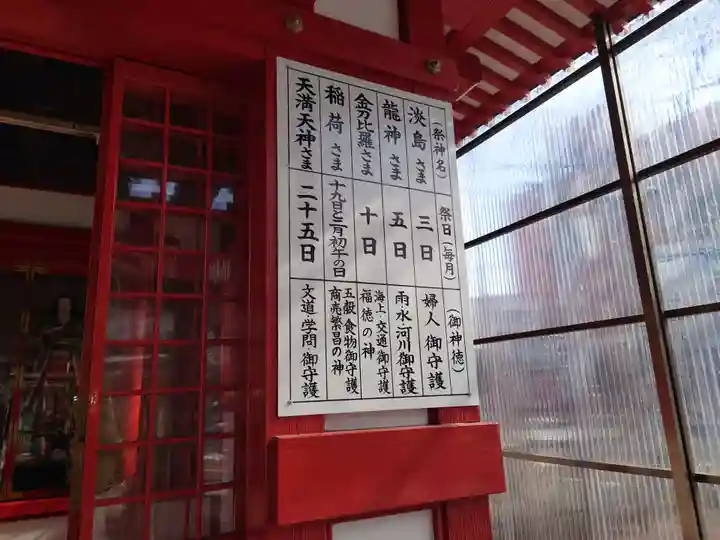 （祭神名） 祭日（毎月） （御神徳）
淡島さま 三日 婦人御守護
龍神さま 五日 雨・水・河川御守護
金刀比羅さま 十日 海上・交通御守護
福徳の神
稲荷さま 十九日と二月初午の日 五穀食物御守護
商売繁昌の神
天満天神さま 二十五日 文道・学問御守護